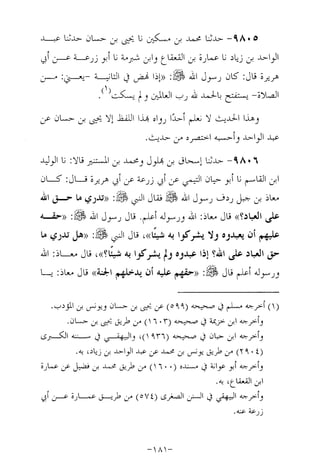 ٩٨٠٥- حدثنا محمد بن مسكين نا يحيى بن حسان حدثنا عبد
الواحد بن زياد نا عمارة بن القعقاع وابن شبرمة نا أبو زرعة عن أبي
هريرة قال: كان رسول الله ﷺ: «إذا نهض في الثانية -يعني: من
الصلاة- يستفتح بالحمد لله رب العالمين و لم يسكت»(١).
وهذا الحديث لا نعلم أحدًا رواه بهذا اللفظ إلا يحيى بن حسان عن
عبد الواحد وأحسبه اختصره من حديث.
٩٨٠٦- حدثنا إسحاق بن بهلول ومحمد بن المستنير قالا: نا الوليد
ابن القاسم نا أبو حيان التيمي عن أبي زرعة عن أبي هريرة قال: كان
معاذ بن جبل ردف رسول الله ﷺ فقال النبي ﷺ: «تدري ما حق الله
على العباد؟» قال معاذ: الله ورسوله أعلم. قال رسول الله ﷺ: «حقه
عليهم أن يعبدوه ولا يشركوا به شيئًا»، قال النبي ﷺ: «هل تدري ما
حق العباد على الله؟ إذا عبدوه ولم يشركوا به شيئًا؟»، قال معاذ: الله
ورسوله أعلم قال ﷺ: «حقهم عليه أن يدخلهم الجنة» قال معاذ: يا
(١) أخرجه مسلم في صحيحه (٥٩٩) عن يحيى بن حسان ويونس بن المؤدب.
وأخرجه ابن خزيمة في صحيحه (١٦٠٣) من طريق يحيى بن حسان.
وأخرجه ابن حبان في صحيحه (١٩٣٦)، والبيهقي في سننه الكبرى
(٢٩٠٤) من طريق يونس بن محمد عن عبد الواحد بن زياد، به.
وأخرجه أبو عوانة في مسنده (١٦٠٠) من طريق محمد بن فضيل عن عمارة
ابن القعقاع، به.
وأخرجه البيهقي في السنن الصغرى (٥٧٤) من طريق عمارة عن أبي
زرعة عنه.
-١٨١-